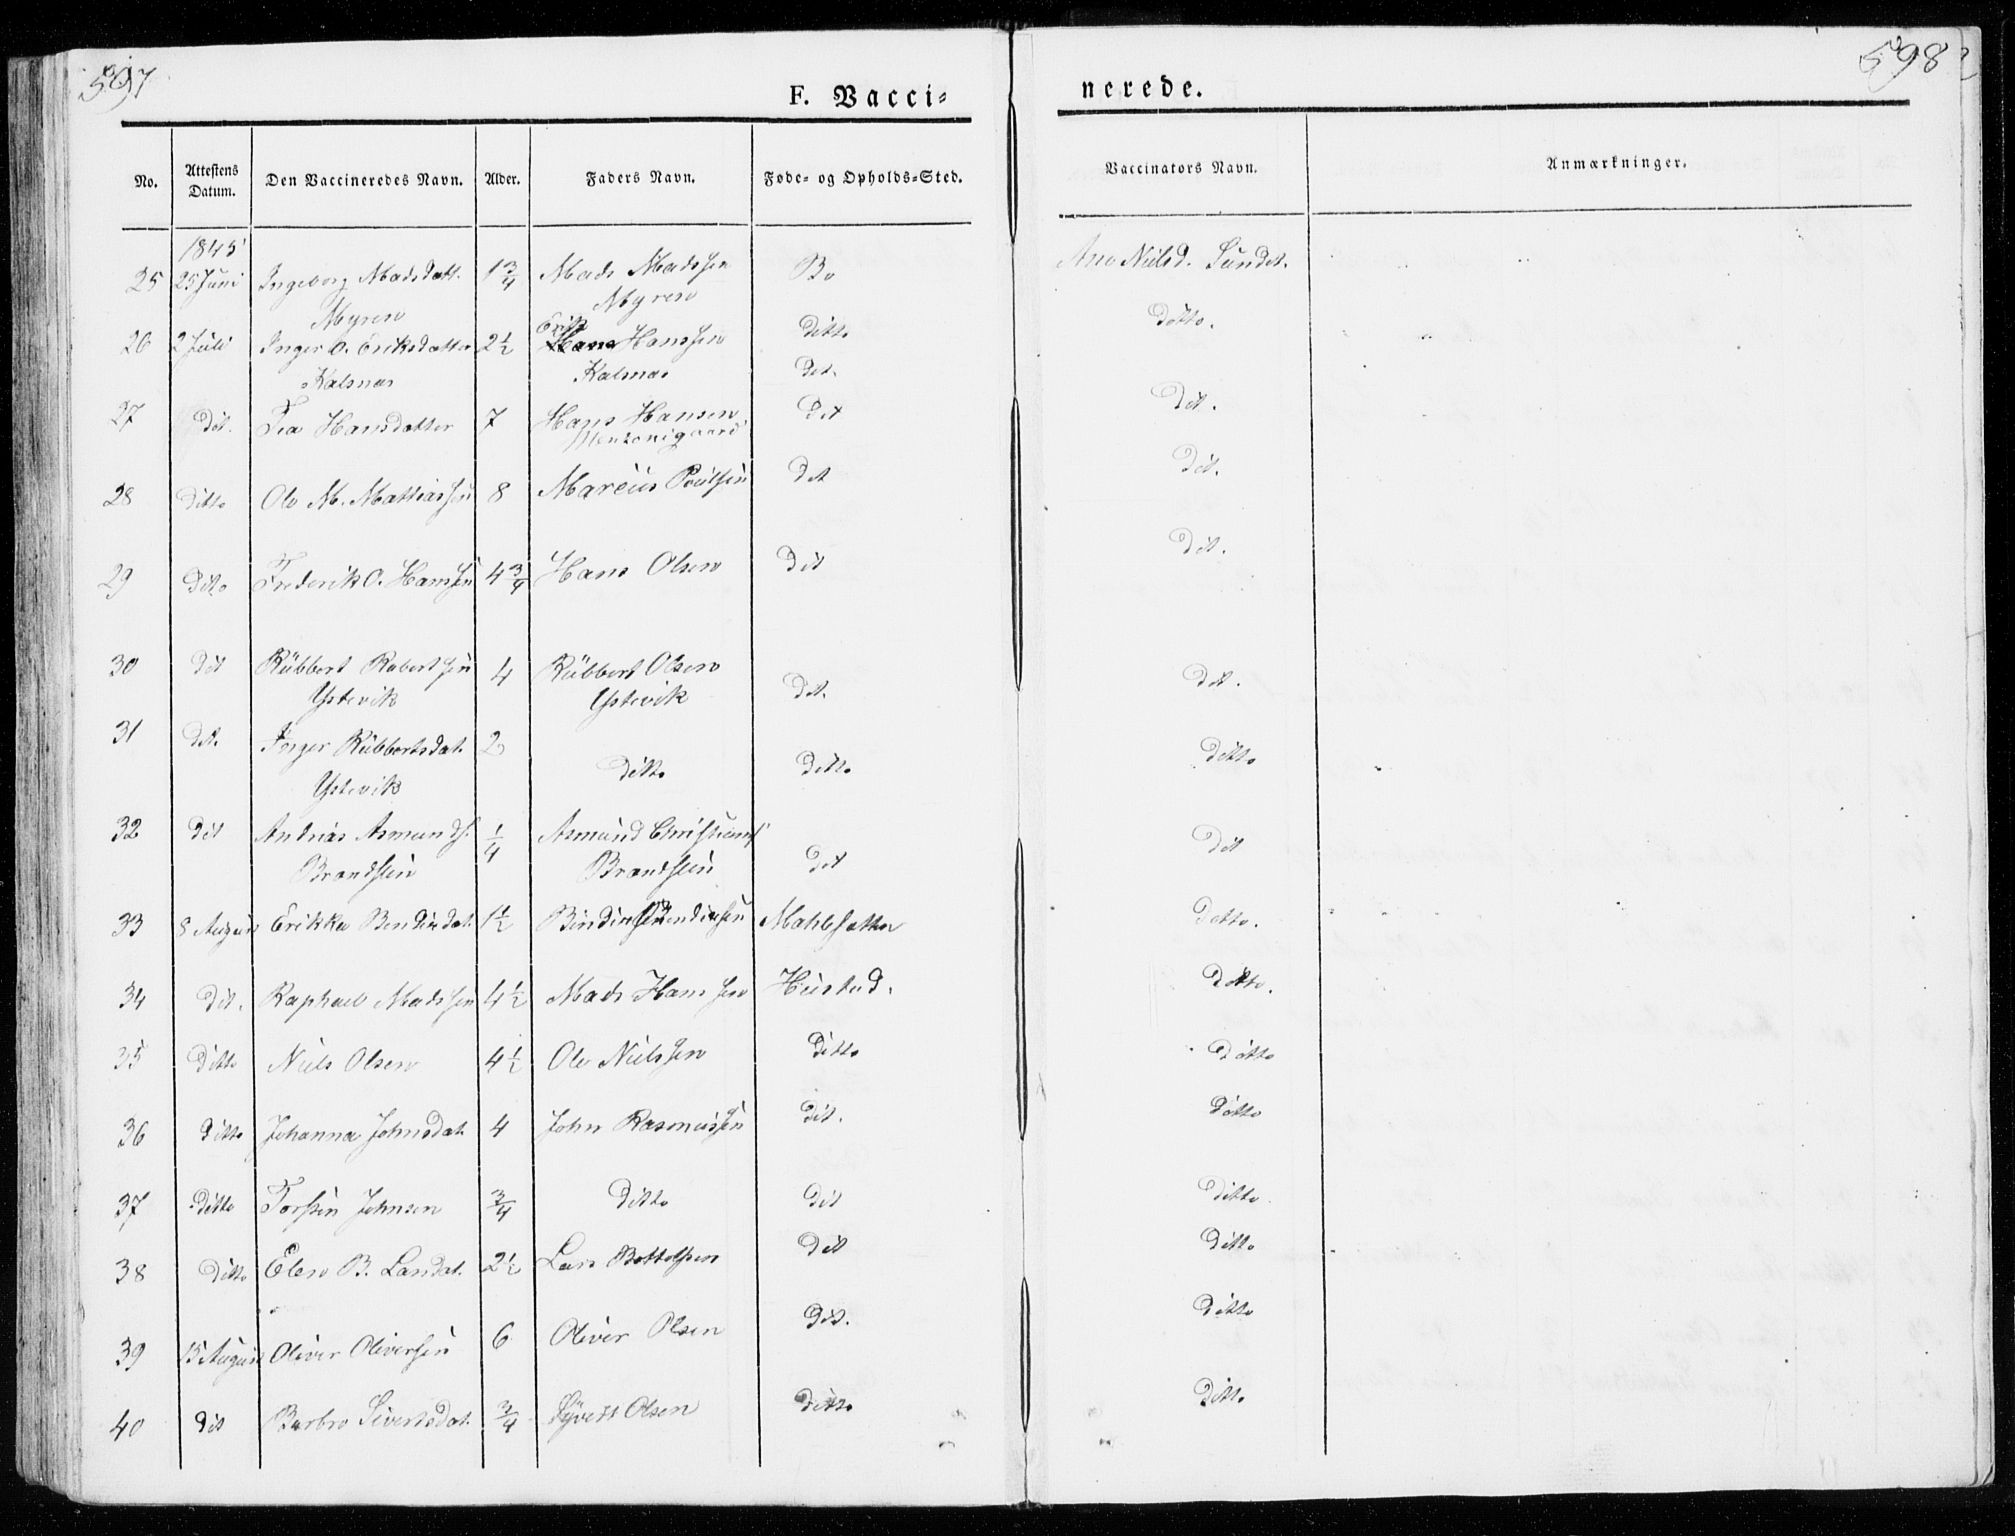 597
598
F. Vacci-
nerede.
No. Attestens Datum. Den Vaccineredes Navn. Alder. Faders Navn. Føde- og Opholds-Sted. Vaccinators Navn. Anmærkninger.
1845
25 25 Juni Ingeborg Madsdatt. 1 3/4 Mads Madssen Bo Ane Nielsd. Sundet.
Myren Myren
26 2 Juli Inger O. Eriksdatter 2 1/2 Erik Hanssen ditto Ditto.
Kalsnas Kalsnas Det.
27 Dit. Tea Hansdatter 7 Hans Hansen Det Dit.
28 Ditto Ole M. Mattiassen 8 Marcus Poulsen Det Dit.
29 Ditto Frederik O. Hanssen 4 3/4 Hans Olsen Dit Dit.
30 Dit Rübbert Robertsen 4 Rübbert Olsen Dit. Dit.
Ystevik Ystevik
31 Dit. Inger Rübbertsdat. 2 Ditto Ditto Ditto
Ystevik
32 Dit Andreas Asmunds. 1/4 Asmund Christians Dit Dit
Brandsten Brandsten
33 8 August Erikka Bendixdat. 1 1/2 Bendixsen Ditto.
34 Dit. Raphael Madssen 4 1/2 Mads Hanssen Hustad. Ditto.
35 Ditto Niels Olsen 4 1/2 Ole Nielssen Ditto Ditto
36 Ditto Johanna Johnsdat. 4 John Rasmussen Dit. Ditto
37 Ditto Torsten Johnsen 3/4 Ditto Dit Ditto
38 Ditto Elen B. Larsdat. 2 1/2 Lars Bottolfsen Dit Ditto
39 15 August Oliver Oliversen 6 Oliver Olsen Dit. Ditto
40 Dit Barbro Sivertsdat. 3/4 Syvert Olsen Ditto Ditto